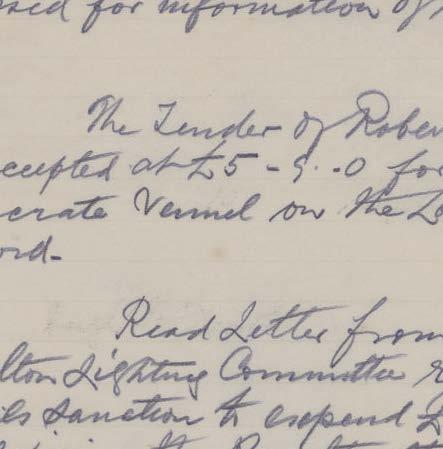 for information of
The Tender of Rober
ccepted at £5-9.-0 for
crate Vennel on the L
ord-
Read Letter from
lton Lighting Committee
ils sanction to expend £